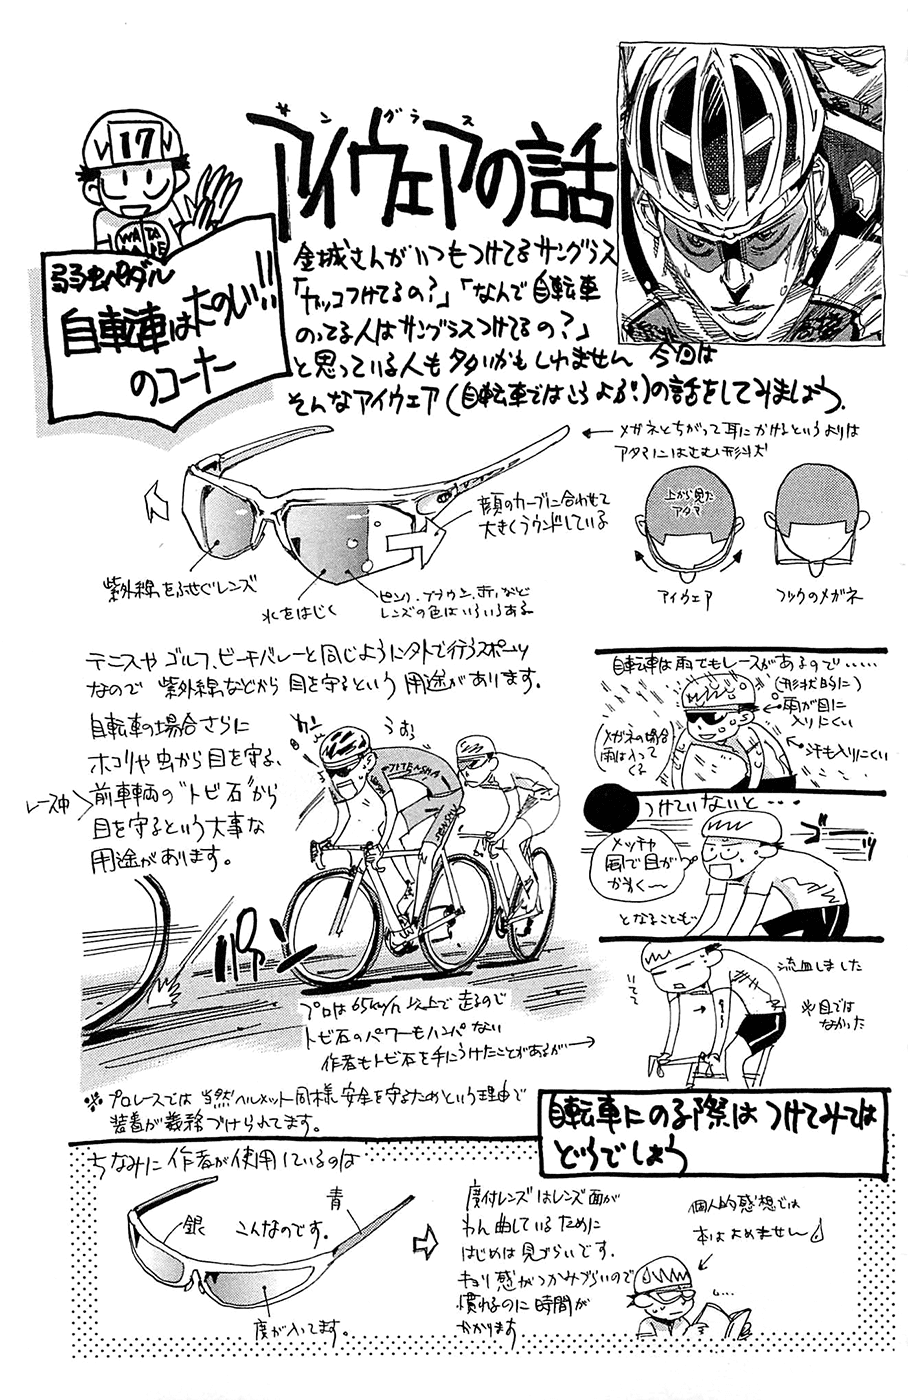 サングラス
アイウェアの話
17
WATANABE
弱虫ペダル
自転車はたのしい!!
のコーナー
金城さんがいつもつけてるサングラス
「カッコつけてるの?」「なんで自転車
のってる人はサングラスつけてるの?」
と思っている人も多いかもしれません 今回は
そんなアイウェア(自転車ではこうよぶ!)の話をしてみましょう.
メガネとちがって耳にかけるというよりは
アタマにはさむ形状
顔のカーブに合わせて
大きくラウンドしている
上から見た
アタマ
アイウェア
フツウのメガネ
紫外線をふせぐレンズ
水をはじく
ピンク、ブラウン、赤、など
レンズの色はいろいろある
テニスや ゴルフ、ビーチバレーと同じように外で行うスポーツ
なので 紫外線などから目を守るという用途があります.
自転車の場合さらに
ホコリや虫から目を守る、
レース中
前車輌の"トビ石"から
目を守るという大事な
用途があります。
カン
うお
JITENSHA
SENSHU
自転車は雨でもレースがあるので・・・・・
(形状的に)
雨が目に
入りにくい
汗も入りにくい
メガネの場合
雨は入って
くる
つけていないと・・・
メッチャ
風で目が
かわく〜
ゴーッ
となることも
プロは65km/h以上で走るので
トビ石のパワーもハンパない
作者もトビ石を手にうけたことがあるが→
いてて
流血しました
※目では
なかった
※プロレースでは 当然ヘルメット同様 安全を守るためという理由で
装着が義務づけられてます。
自転車にのる際は つけてみては
どうでしょう
ちなみに作者が使用しているのは
銀
こんなのです.
青
度が入ってます。
度付レンズはレンズ面が
わん曲しているために
はじめは見づらいです.
キョリ感がつかみづらいので
慣れるのに時間が
かかります
個人的感想では
本はよめません